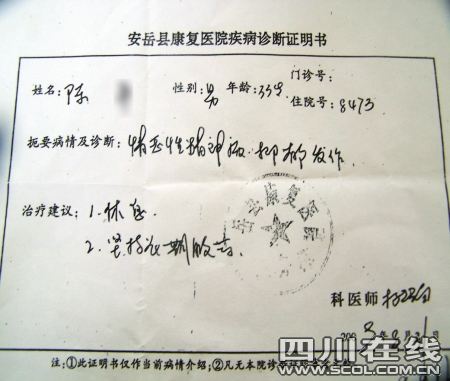 安岳县康复医院疾病诊断证明书
门诊号:
姓名: 陈 性别: 男 年龄: 33岁
住院号: 8473
扼要病情及诊断: 情感性精神病.抑郁发作.
治疗建议: 1.休息.
2.坚持长期服药.
安岳县康复医院
科医师
四川在线
WWW.SCOL.COM.CN
注:①此证明书仅作当前病情介绍;②凡无本院诊